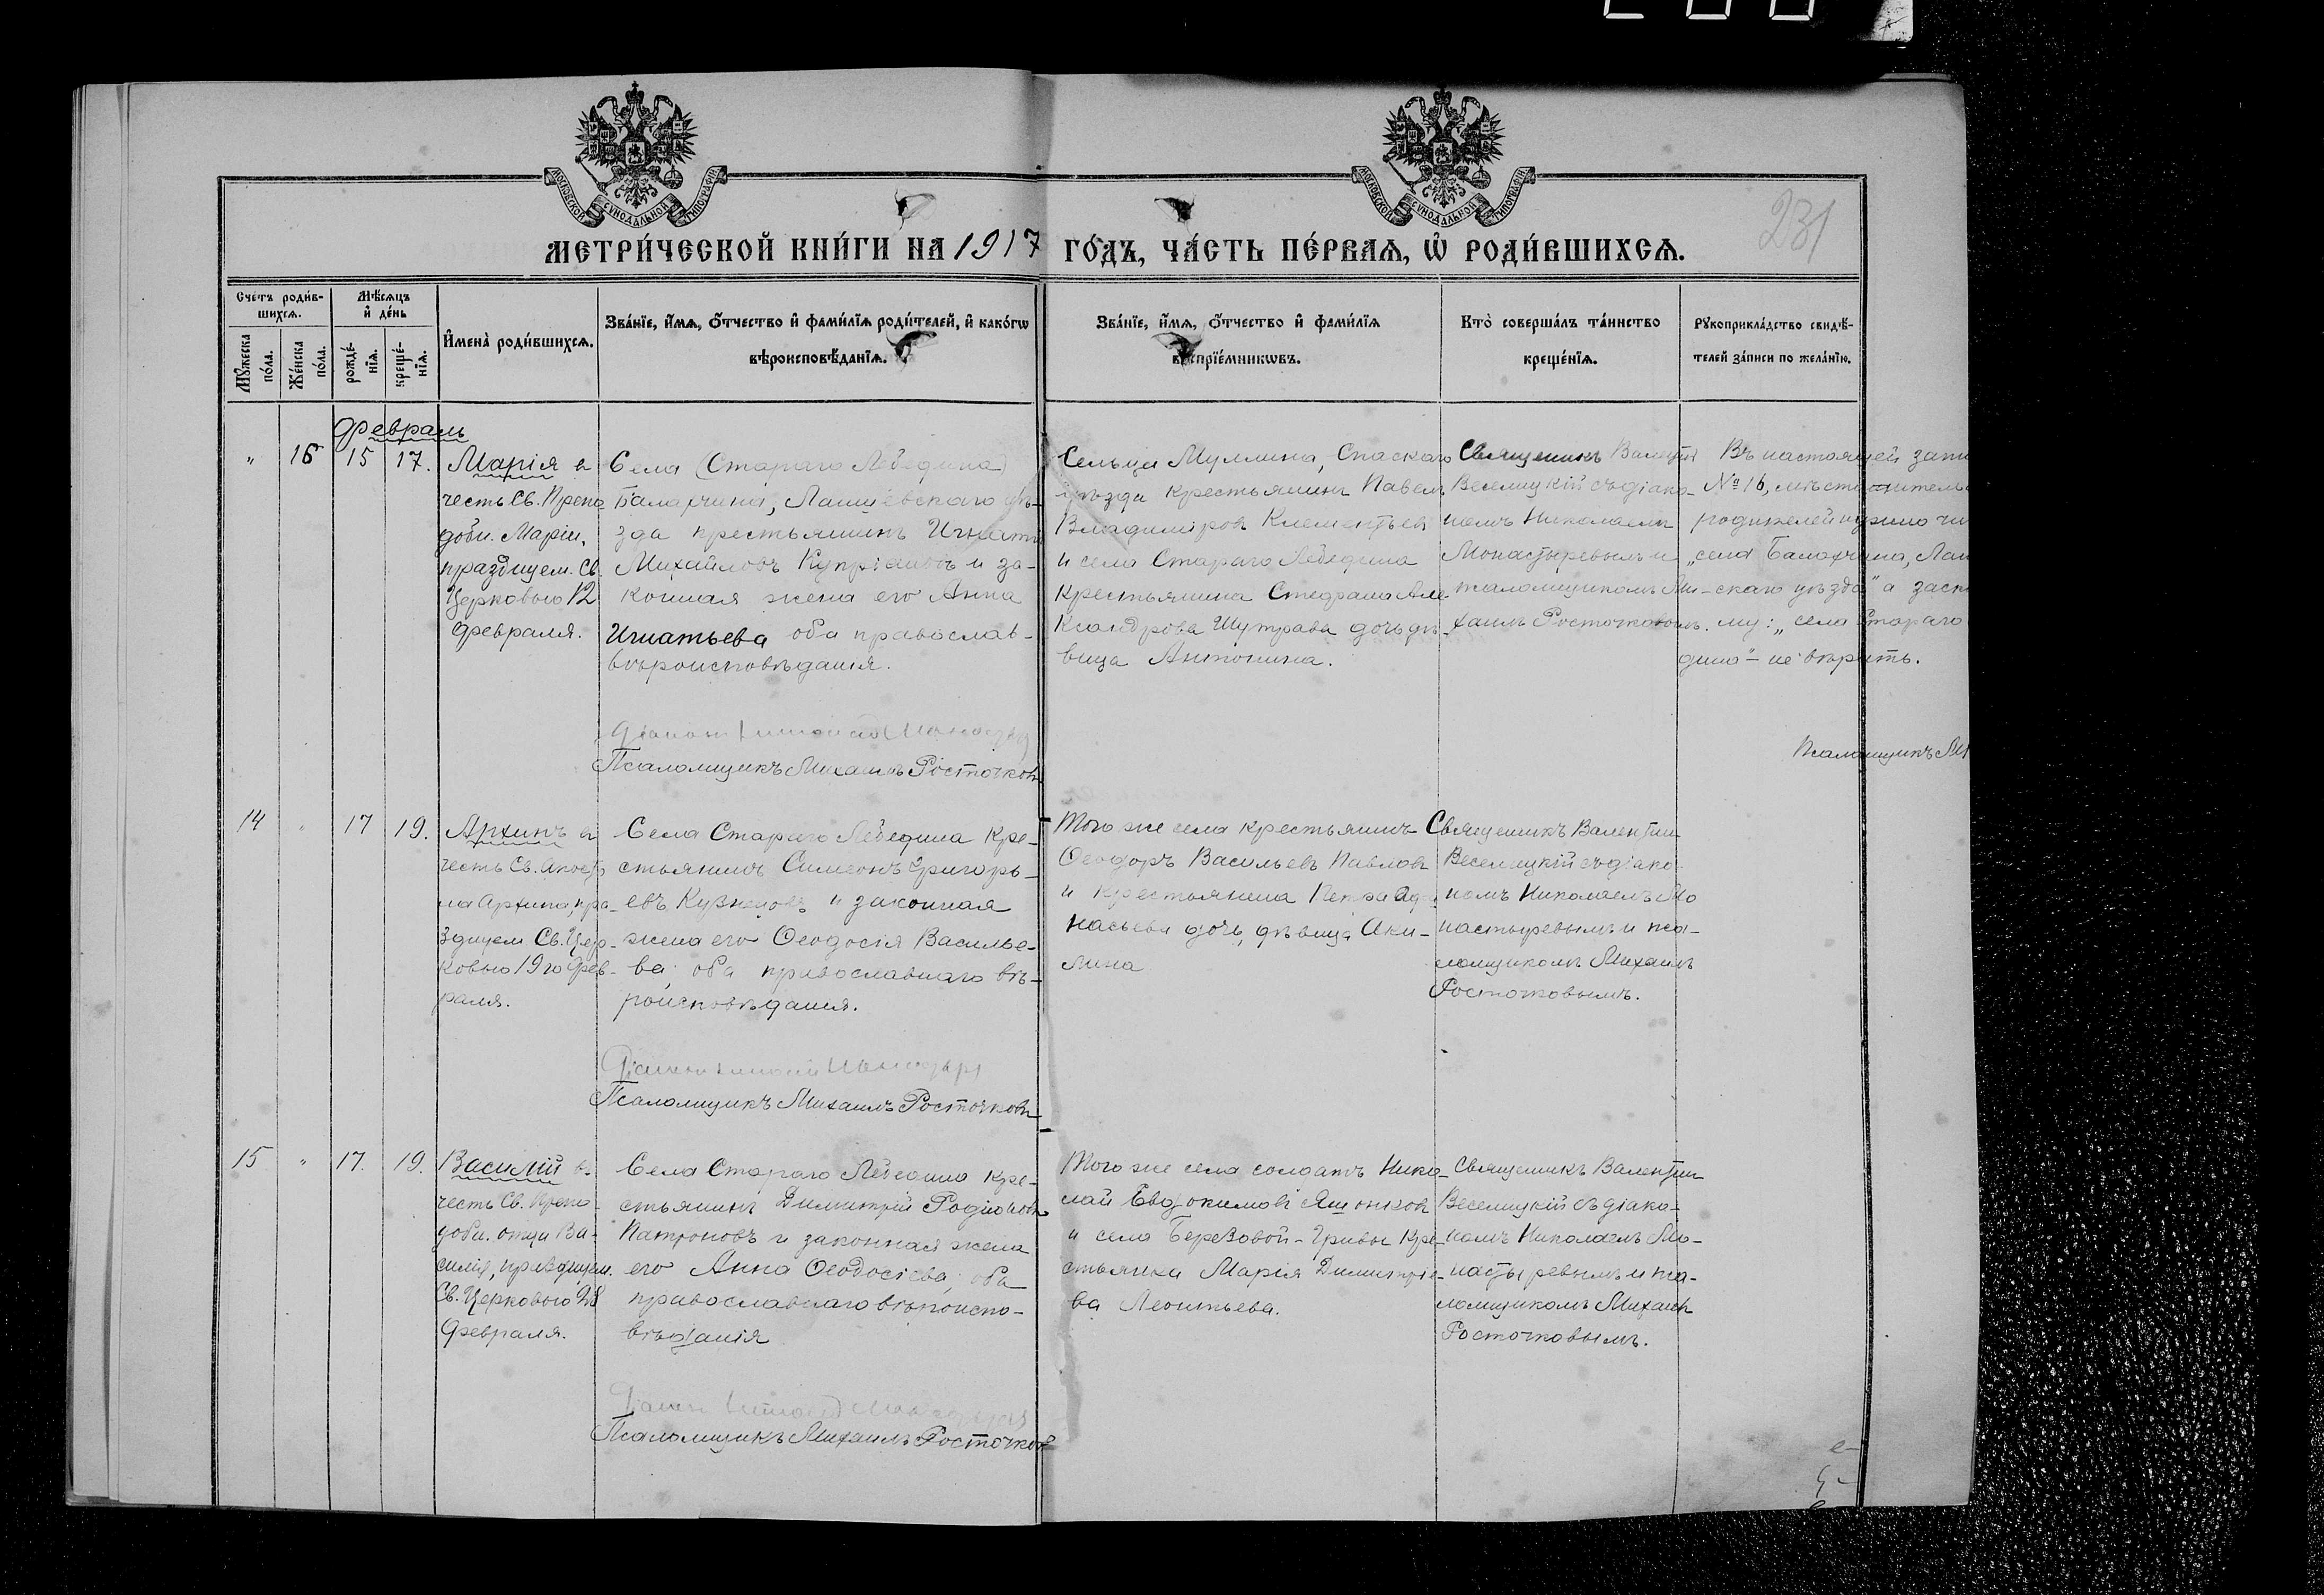 231
МОСКОВСКОЙ СУНОДАЛЬНОЙ ТИПОГРАФІИ
МОСКОВСКОЙ СУНОДАЛЬНОЙ ТИПОГРАФІИ
МЕТРИ́ЧЕСКОЙ КНИ́ГИ НА 1917 ГО́ДЪ, ЧА́СТЬ ПЕ́РВАѦ, Ѡ҆ РОДИ́ВШИХСѦ.
Сче́тъ роди́в-
шихсѧ.
Мꙋжеска по́ла.
Же́нска по́ла.
Мѣ́сѧцъ
и҆ де́нь
рожде́-
нїѧ.
креще́-
нїѧ.
И҆мена̀ роди́вшихсѧ.
Зва́нїе, и҆́мѧ, ѻ҆́тчество и҆ фами́лїѧ роди́телей, и҆ како́гѡ
вѣроисповѣ́данїѧ.
Зва́нїе, и҆́мѧ, ѻ҆́тчество и҆ фами́лїѧ
воспрїе́мникѡвъ.
Кто̀ соверша́лъ та́инство
креще́нїѧ.
Рꙋкоприкла́дство свидѣ́-
телей за́писи по жела́нїю.
Февраль
" 16 15 17.
Марія въ
честь Св. Препо
добн. Маріи,
празднуем. Св.
Церковью 12
февраля.
Села (Стараго Лебедина)
Балахчина, Лаишевскаго уѣ-
зда крестьянинъ Игнатій
Михайловъ Купріановъ и за-
конная жена его Анна
Игнатьева оба православ-
вѣроисповѣданія.
Псаломщикъ Михаилъ Росточковъ
Сельца Муллина, Спаскаго
уѣзда крестьянинъ Павелъ
Владиміровъ Клементьевъ
и села Стараго Лебедина
крестьянина Стефана Але-
ксандрова Шутрава дочь дѣ-
вица Антонина.
Священникъ Валентин
Веселицкій съ діако-
номъ Николаемъ
Монастыревымъ и
псаломщикомъ Ми-
хаилъ Росточковымъ.
Въ настоящей запи
№ 16, мѣсто жительс
родителей нужно чи
„села Балахчина, Лаи
-скаго уѣзда" а заск
му: „села Стараго
дина" – не вѣрить.
Псаломщикъ Ми
14 " 17 19.
Архипъ въ
честь Св. Апост
ла Архипа, пра-
зднуем Св. Цер-
ковью 19го Фев-
раля.
Села Стараго Лебедина кре-
стьянинъ Симеонъ Григорь-
евъ Кузнецовъ и законная
жена его Ѳеодосія Василье-
ва; оба православнаго вѣ-
роисповѣданія.
Псаломщикъ Михаилъ Росточковъ
Того же села крестьянинъ
Ѳеодоръ Васильевъ Павловъ
и крестьянина Петра Аѳа-
насьева дочь, дѣвица Аки-
лина
Священникъ Валентин
Веселицкій съ діако-
номъ Николаемъ Мо
настыревымъ и пса-
ломщикомъ Михаилъ
Росточковымъ.
15 " 17. 19.
Василій въ
честь Св. Препо-
добн. отца Ва-
силія, празднуем.
Св. Церковью 28
Февраля.
Села Стараго Лебедино кре-
стьянинъ Димитрій Родіоновъ
Патроновъ и законная жена
его Анна Ѳеодосіева; оба
православнаго вѣроиспо-
вѣданія
Псаломщикъ Михаилъ Росточков
Того же села солдатъ Нико-
лай Евдокимовъ Яшонков
и села Березовой-Гривы кре-
стьянка Марія Димитріе-
ва Леонтьева.
Священникъ Валентин
Веселицкій съ діако-
номъ Николаемъ Мо-
настыревымъ и пса-
ломщикомъ Михаилъ
Росточковымъ.